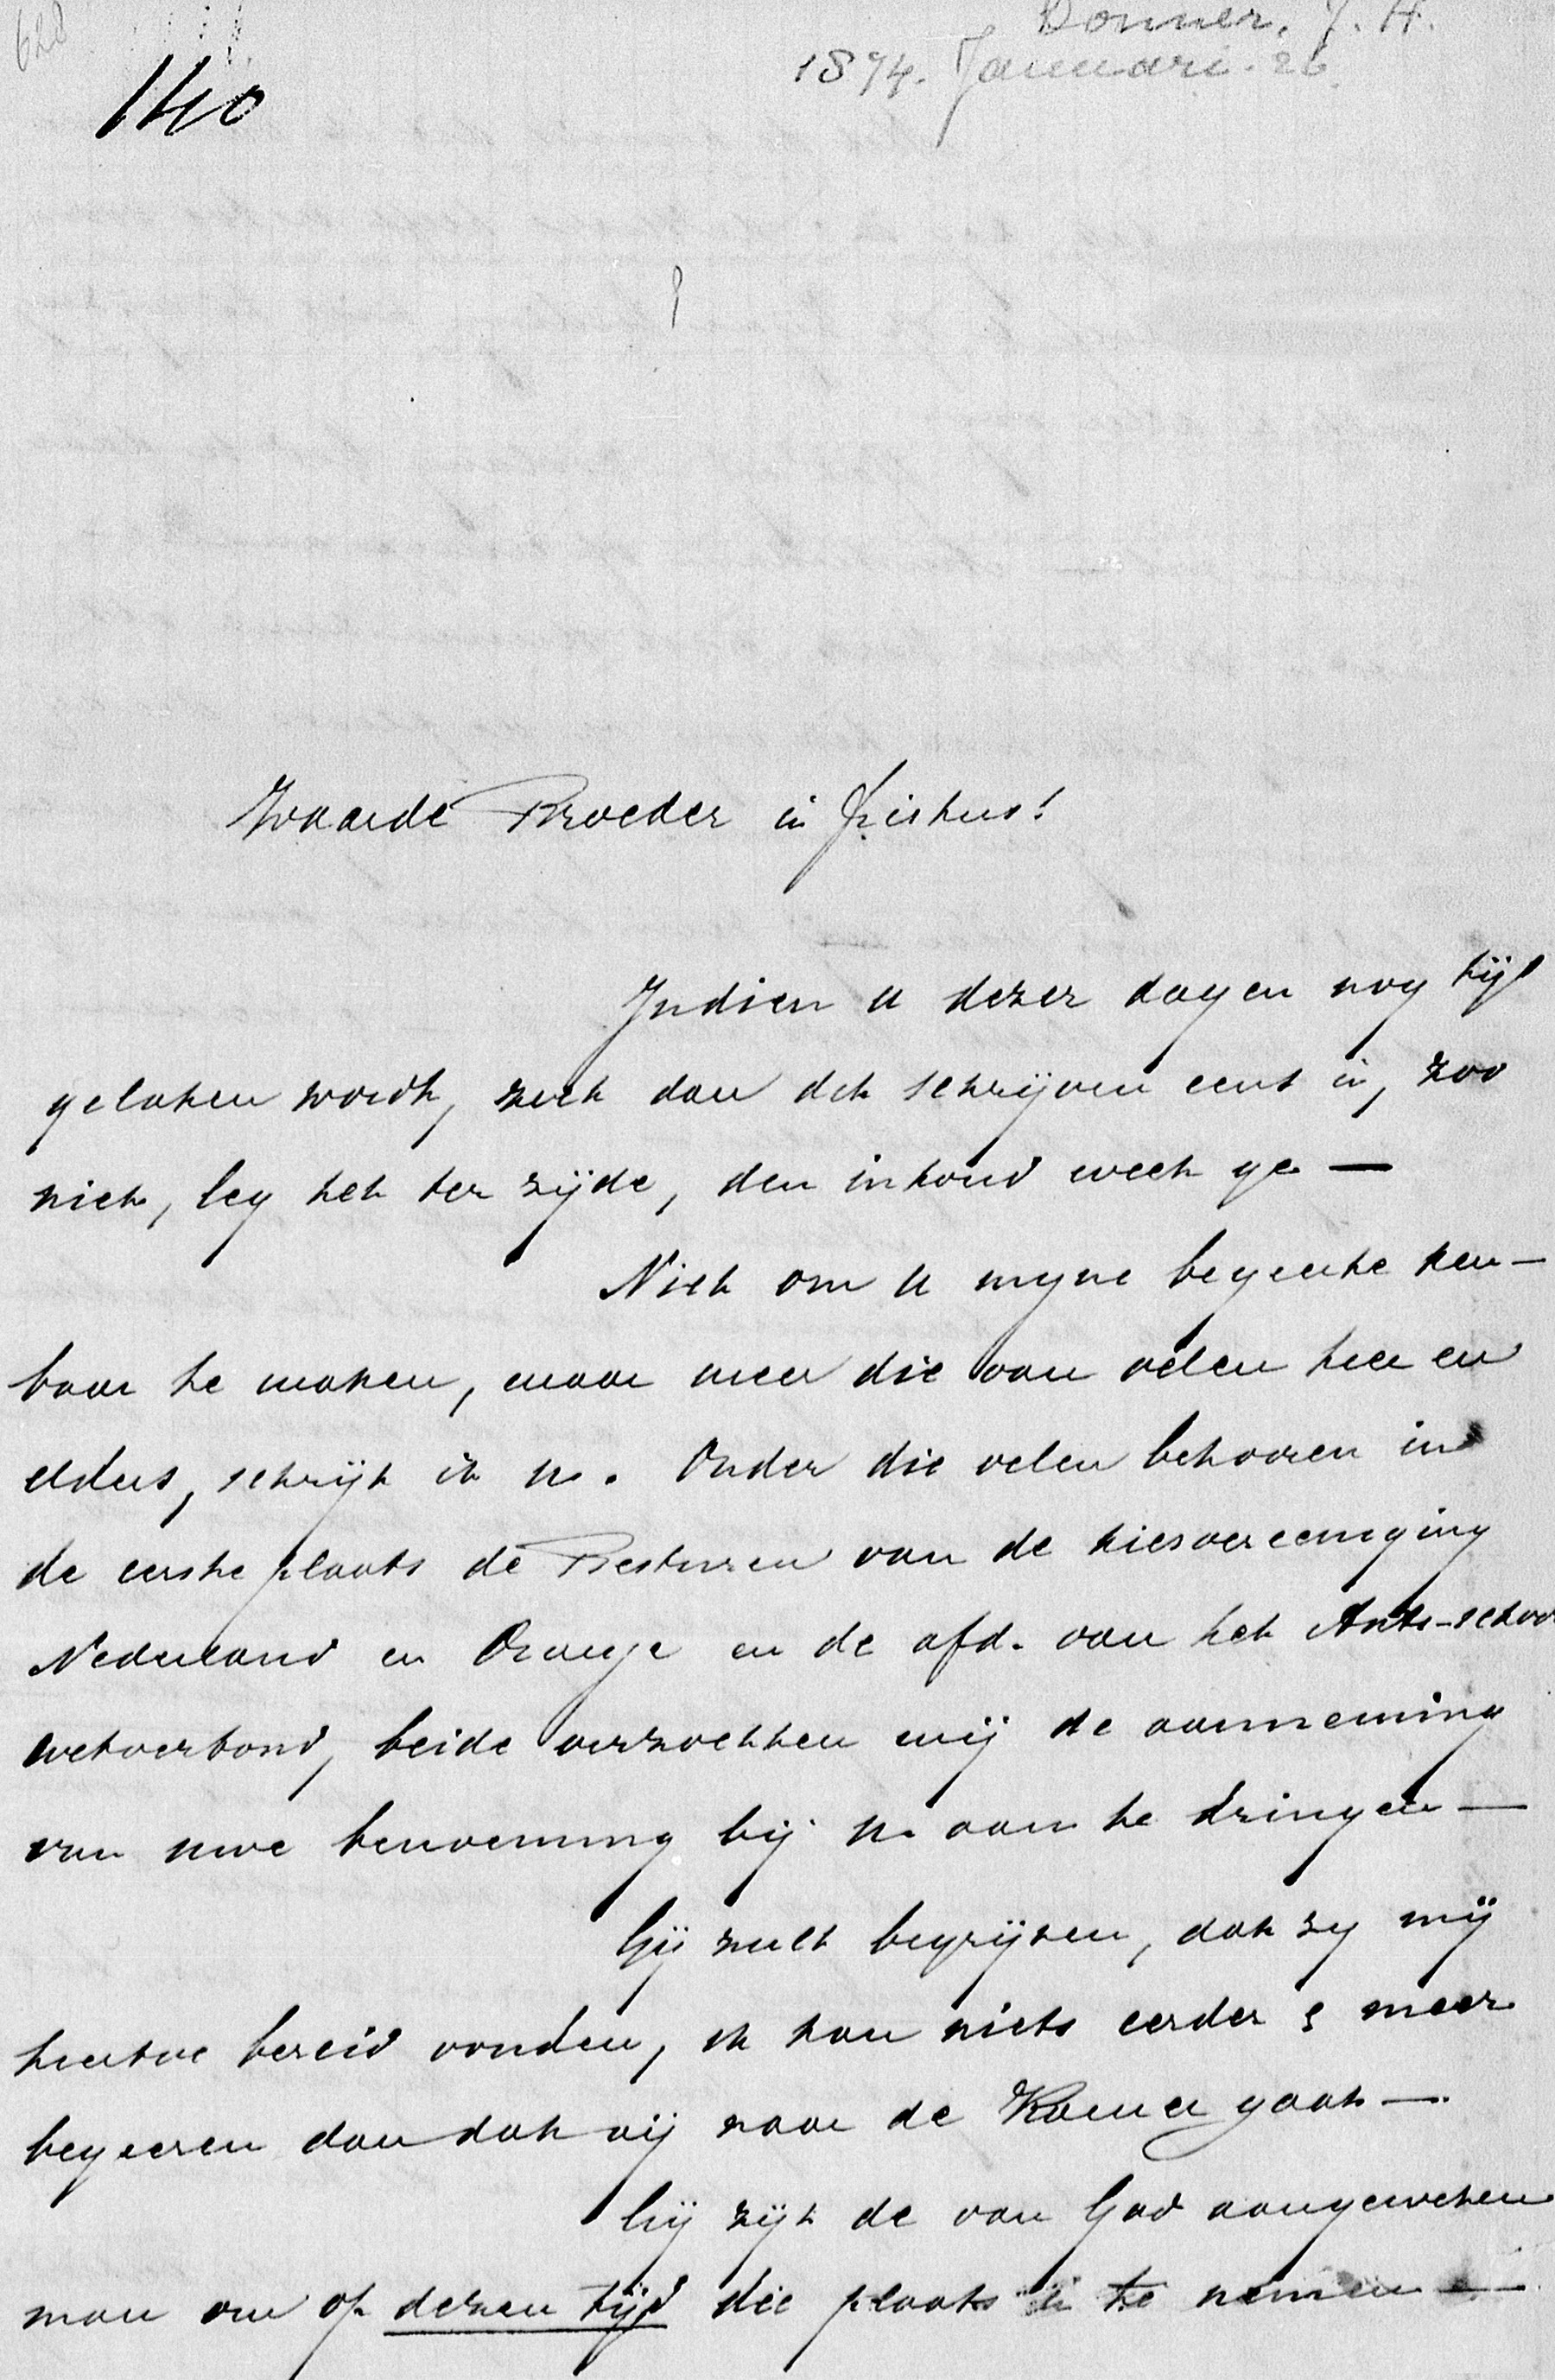 628
Donner, J. H.
1874. Januari. 26
140
Waarde Broeder in Kristus!
Indien u dezer dagen nog tijd
gelaten wordt, zoek dan dit schrijven eens in, zoo
niet, leg het ter zijde, den inhoud weet ge —
Niet om u myne begeerte ken-
baar te maken, maar meer die van velen hier en
elders, schrijf ik u. Onder die velen behooren in
de eerste plaats de Besturen van de kiesvereeniging
Nederland en Oranje en de afd. van het Anti-school
wetverbond, beide verzochten mij de aanneming
van uwe benoeming bij u aan te dringen —
Gij zult begrijpen, dat zy mij
hiertoe bereid vonden, ik kan niets eerder & meer
begeeren dan dat gij naar de Kamer gaat —
Gij zijt de van God aangewezen
man om op dezen tijd die plaats in te nemen —